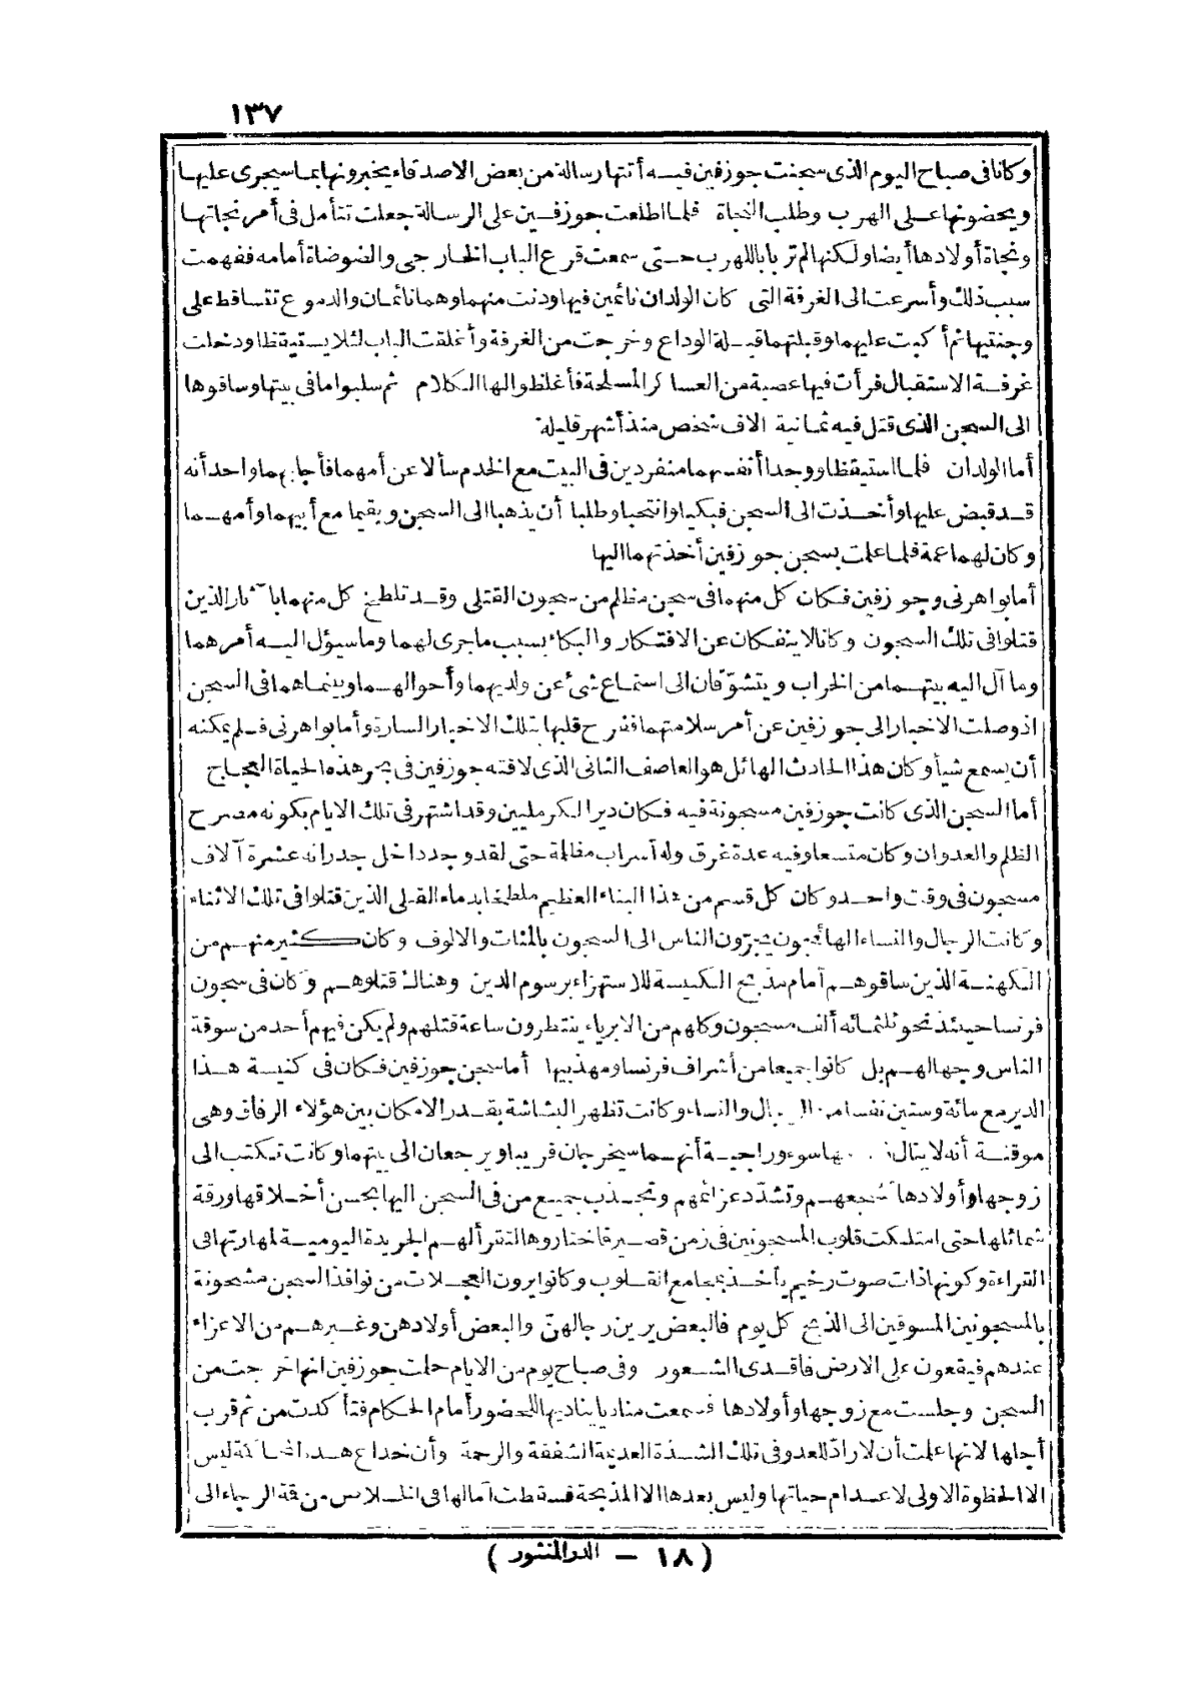 ١٣٧
وكانا فى صباح اليوم الذى سجنت جوزفين فيه أتتها رسالة من بعض الاصدقاء يخبرونها بما سيجرى عليها
ويحضونها على الهرب وطلب النجاة فلما اطلعت جوزفين على الرسالة جعلت تتأمل فى أمر نجاتها
ونجاة أولادها أيضا ولكنها لم تر بابا للهرب حتى سمعت قرع الباب الخارجى والضوضاة أمامه ففهمت
سبب ذلك وأسرعت الى الغرفة التى كان الولدان نائمين فيها ودنت منهما وهما نائمان والدموع تتساقط على
وجنتيها ثم أكبت عليهما وقبلتهما قبلة الوداع وخرجت من الغرفة وأغلقت الباب لئلا يستيقظا ودخلت
غرفة الاستقبال فرأت فيها عصبة من العساكر المسلحة فأغلظوا لها الكلام ثم سلبوا ما فى بيتها وساقوها
الى السجن الذى قتل فيه ثمانية الاف شخص منذ أشهر قليلة
أما الولدان فلما استيقظا ووجدا أنفسهما منفردين فى البيت مع الخدم سألا عن أمهما فأجابهما واحد أنه
قد قبض عليها وأخذت الى السجن فبكيا وانتحبا وطلبا أن يذهبا الى السجن ويقيما مع أبيهما وأمهما
وكان لهما عمة فلما علمت بسجن جوزفين أخذتهما اليها
أما بواهرنى وجوزفين فكان كل منهما فى سجن مظلم من سجون القتلى وقد تلطخ كل منهما بآثار الذين
قتلوا فى تلك السجون وكانا لا ينفكان عن الافتكار والبكاء بسبب ما جرى لهما وما سيؤل اليه أمرهما
وما آل اليه بيتهما من الخراب ويتشوّقان الى استماع شئ عن ولديهما وأحوالهما وبينما هما فى السجن
اذ وصلت الاخبار الى جوزفين عن أمر سلامتهما ففرح قلبها بتلك الاخبار السارة وأما بواهرنى فلم يمكنه
أن يسمع شيأ وكان هذا الحادث الهائل هو العاصف الثانى الذى لاقته جوزفين فى بحر هذه الحياة العجاج
أما السجن الذى كانت جوزفين مسجونة فيه فكان دير الكرمليين وقد اشتهر فى تلك الايام بكونه مصرح
الظلم والعدوان وكان متسعا وفيه عدة غرق وله أسراب مظلمة حتى لقد وجد داخل جدرانه عشرة آلاف
مسجون فى وقت واحد وكان كل قسم من هذا البناء العظيم ملطخا بدماء القتلى الذين قتلوا فى تلك الاثناء
وكانت الرجال والنساء الهائجون يجرّون الناس الى السجون بالمئات والالوف وكان كثير منهم من
الكهنة الذين ساقوهم أمام مذبح الكنيسة للاستهزاء برسوم الدين وهناك قتلوهم وكان فى سجون
فرنسا حينئذ نحو ثلثمائه ألف مسجون وكلهم من الابرياء ينتظرون ساعة قتلهم ولم يكن فيهم أحد من سوقة
الناس وجهالهم بل كانوا جميعا من أشراف فرنسا ومهذبيها أما سجن جوزفين فكان فى كنيسة هذا
الدير مع مائة وستين نفسا من الرجال والنساء وكانت تظهر البشاشة بقدر الامكان بين هؤلاء الرفاق وهى
موقنة أنه لا ينال بها سوء وراجية أنهما سيخرجان قريبا ويرجعان الى بيتهما وكانت تكتب الى
زوجها وأولادها تشجعهم وتشدّد عزائمهم وتجذب جميع من فى السجن اليها بحسن أخلاقها ورقة
شمائلها حتى امتلكت قلوب المسجونين فى زمن قصير فاختاروها لتقرأ لهم الجريدة اليومية لمهارتها فى
القراءة وكونها ذات صوت رخيم يأخذ بمجامع القلوب وكانوا يرون العجلات من نوافذ السجن مشحونة
بالمسجونين المسوقين الى الذبح كل يوم فالبعض يرين رجالهنّ والبعض أولادهن وغيرهم من الاعزاء
عندهم فيقعون على الارض فاقدى الشعور وفى صباح يوم من الايام حلمت جوزفين انها خرجت من
السجن وجلست مع زوجها وأولادها فسمعت مناديا يناديها للحضور أمام الحكام فتأكدت من ثم قرب
أجلها لانها علمت أن لا رادّ للعدو فى تلك الشدة العديمة الشفقة والرحمة وأن خداع هذه ليس
الا الخطوة الاولى لاعدام حياتها وليس بعدها الا المذبحة فسقطت آمالها فى الخلاص من قمة الرجاء الى
(١٨ – الدر المنثور)